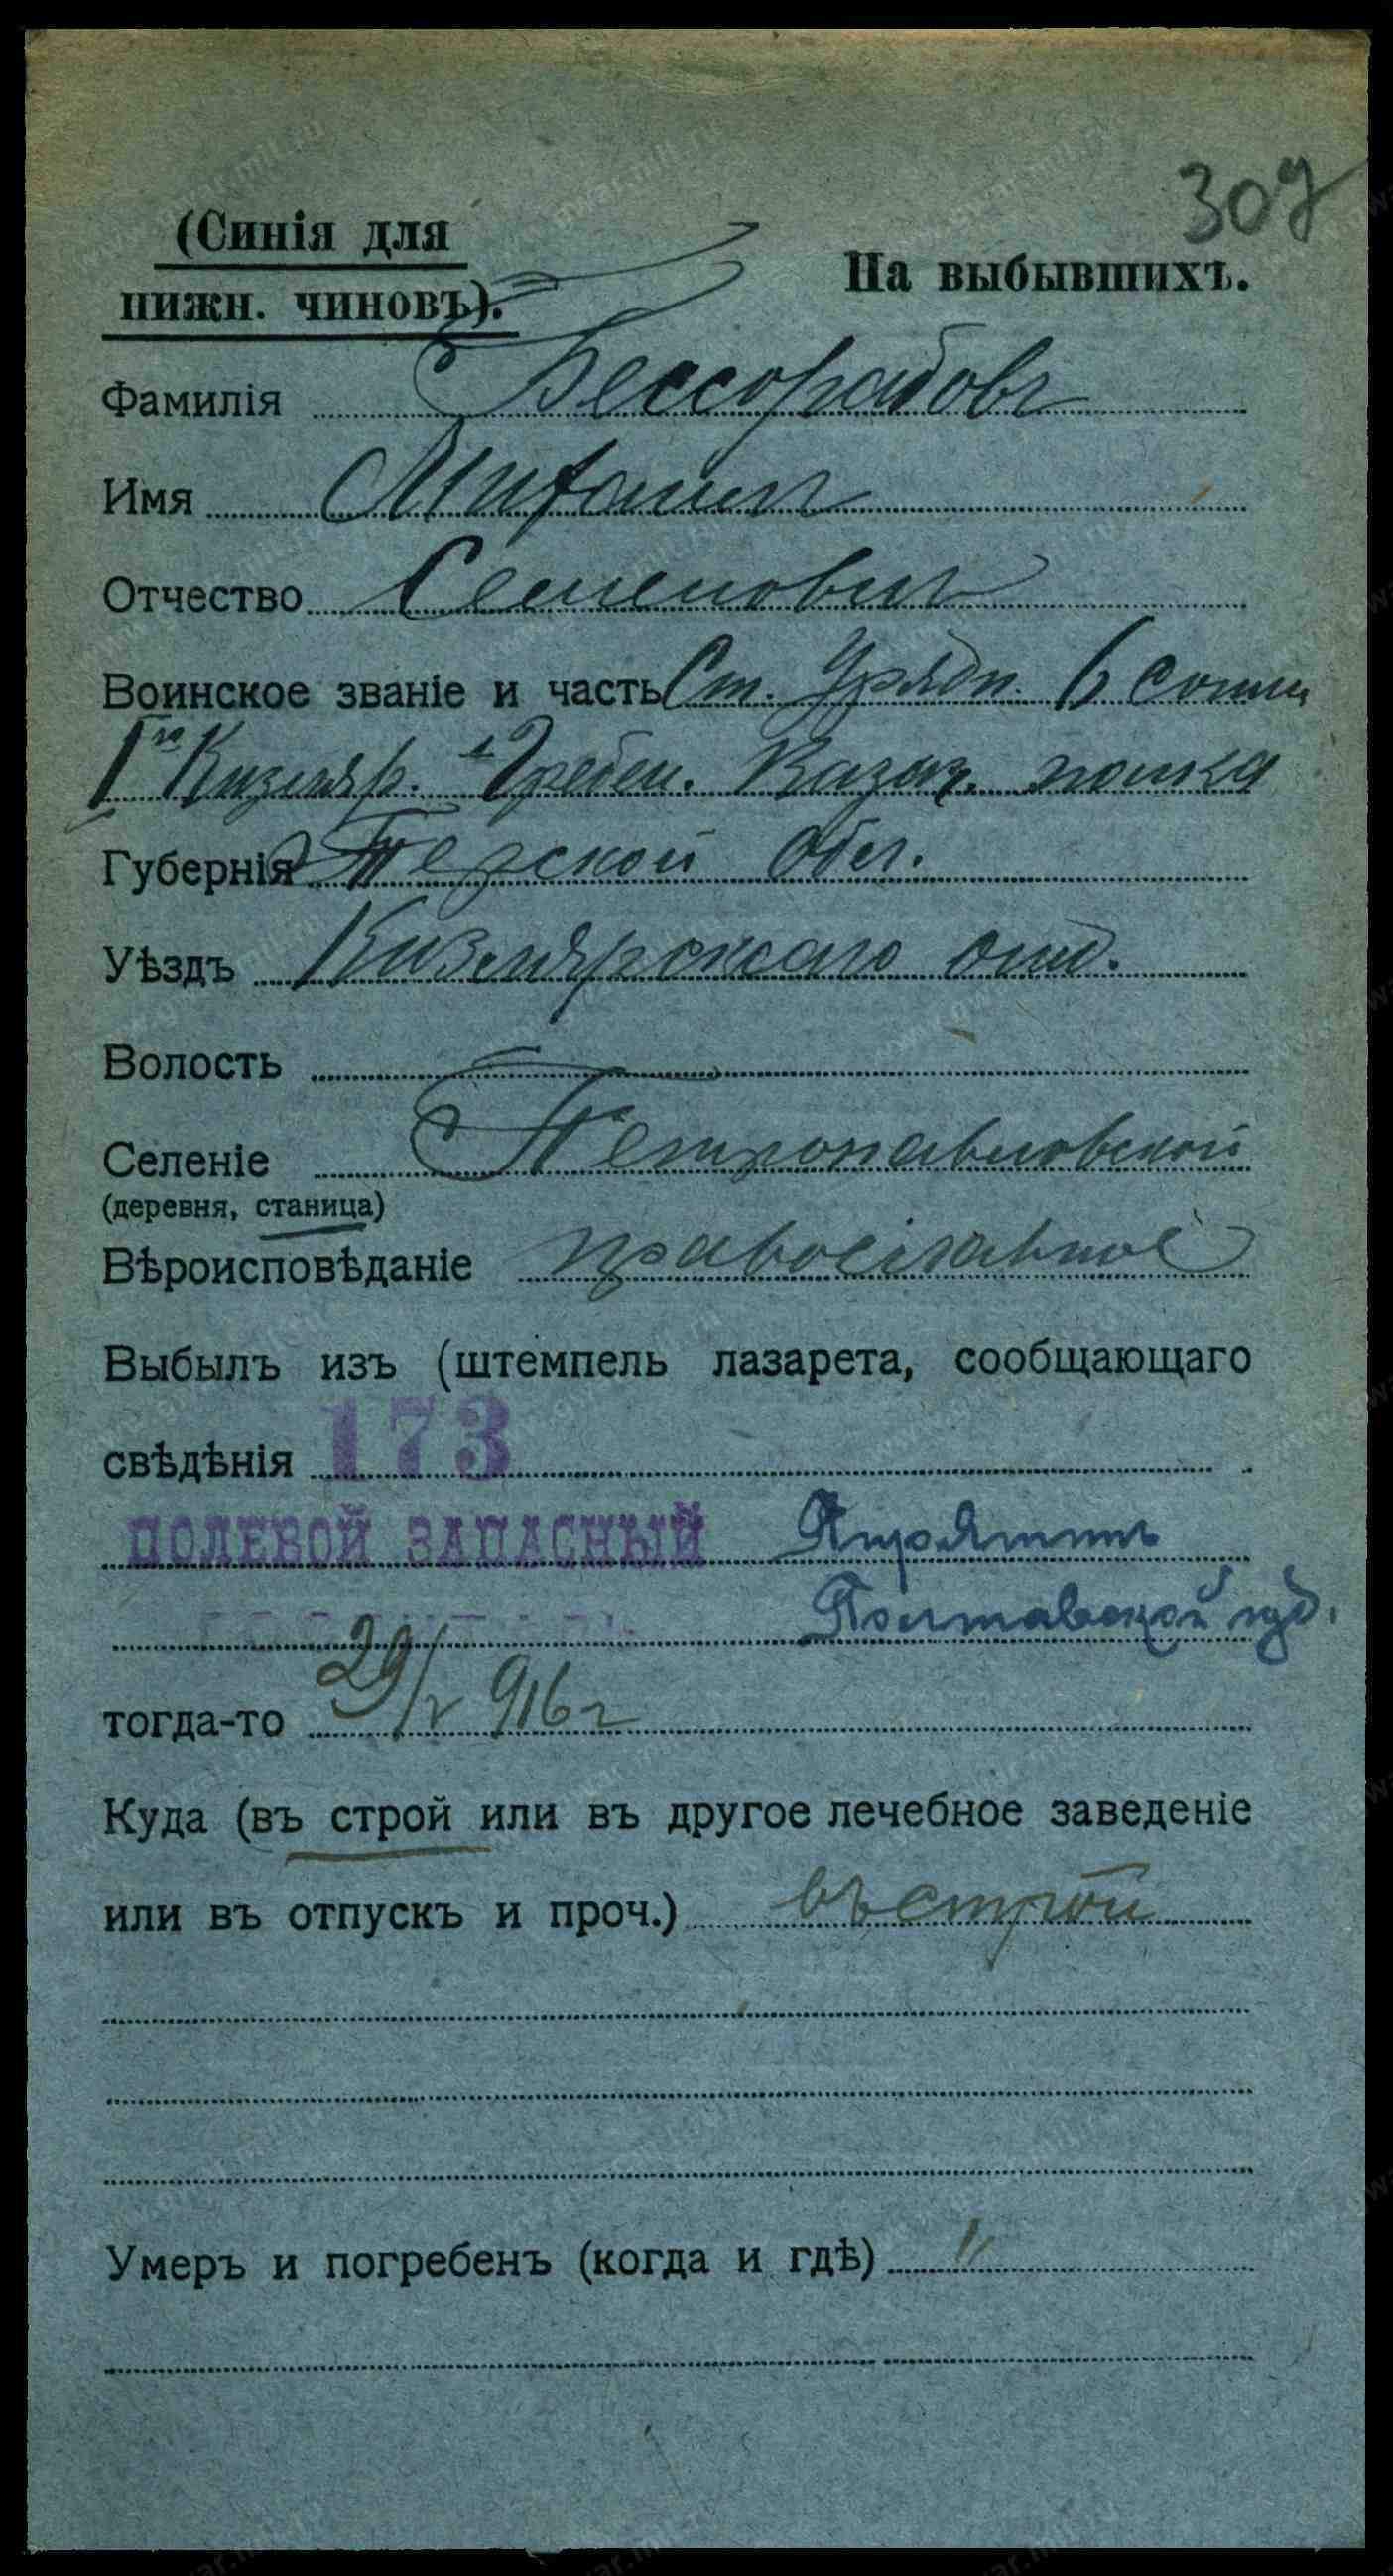 307
(Синія для
нижн. чиновъ).
На выбывшихъ.
Фамилія Бессорабовъ
Имя Митофанъ
Отчество Семеновичъ
Воинское званіе и часть Ст. Урядн. 6 сотни
1го Кизляр. Гребен. Казач. полка
Губернія Терской Обл.
Уѣздъ Кизлярскаго отд.
Волость
Селеніе Петропавловской
(деревня, станица)
Вѣроисповѣданіе православное
Выбылъ изъ (штемпель лазарета, сообщающаго
свѣдѣнія 173
ПОЛЕВОЙ ЗАПАСНЫЙ Пирятинъ
Полтавской губ.
тогда-то 29/V 916 г
Куда (въ строй или въ другое лечебное заведеніе
или въ отпускъ и проч.) въ строй
Умеръ и погребенъ (когда и гдѣ) "